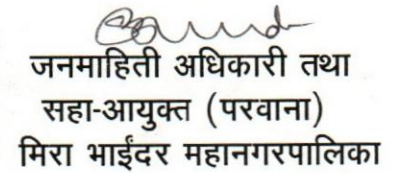 जनमाहिती अधिकारी तथा
सहा-आयुक्त (परवाना)
मिरा भाईंदर महानगरपालिका